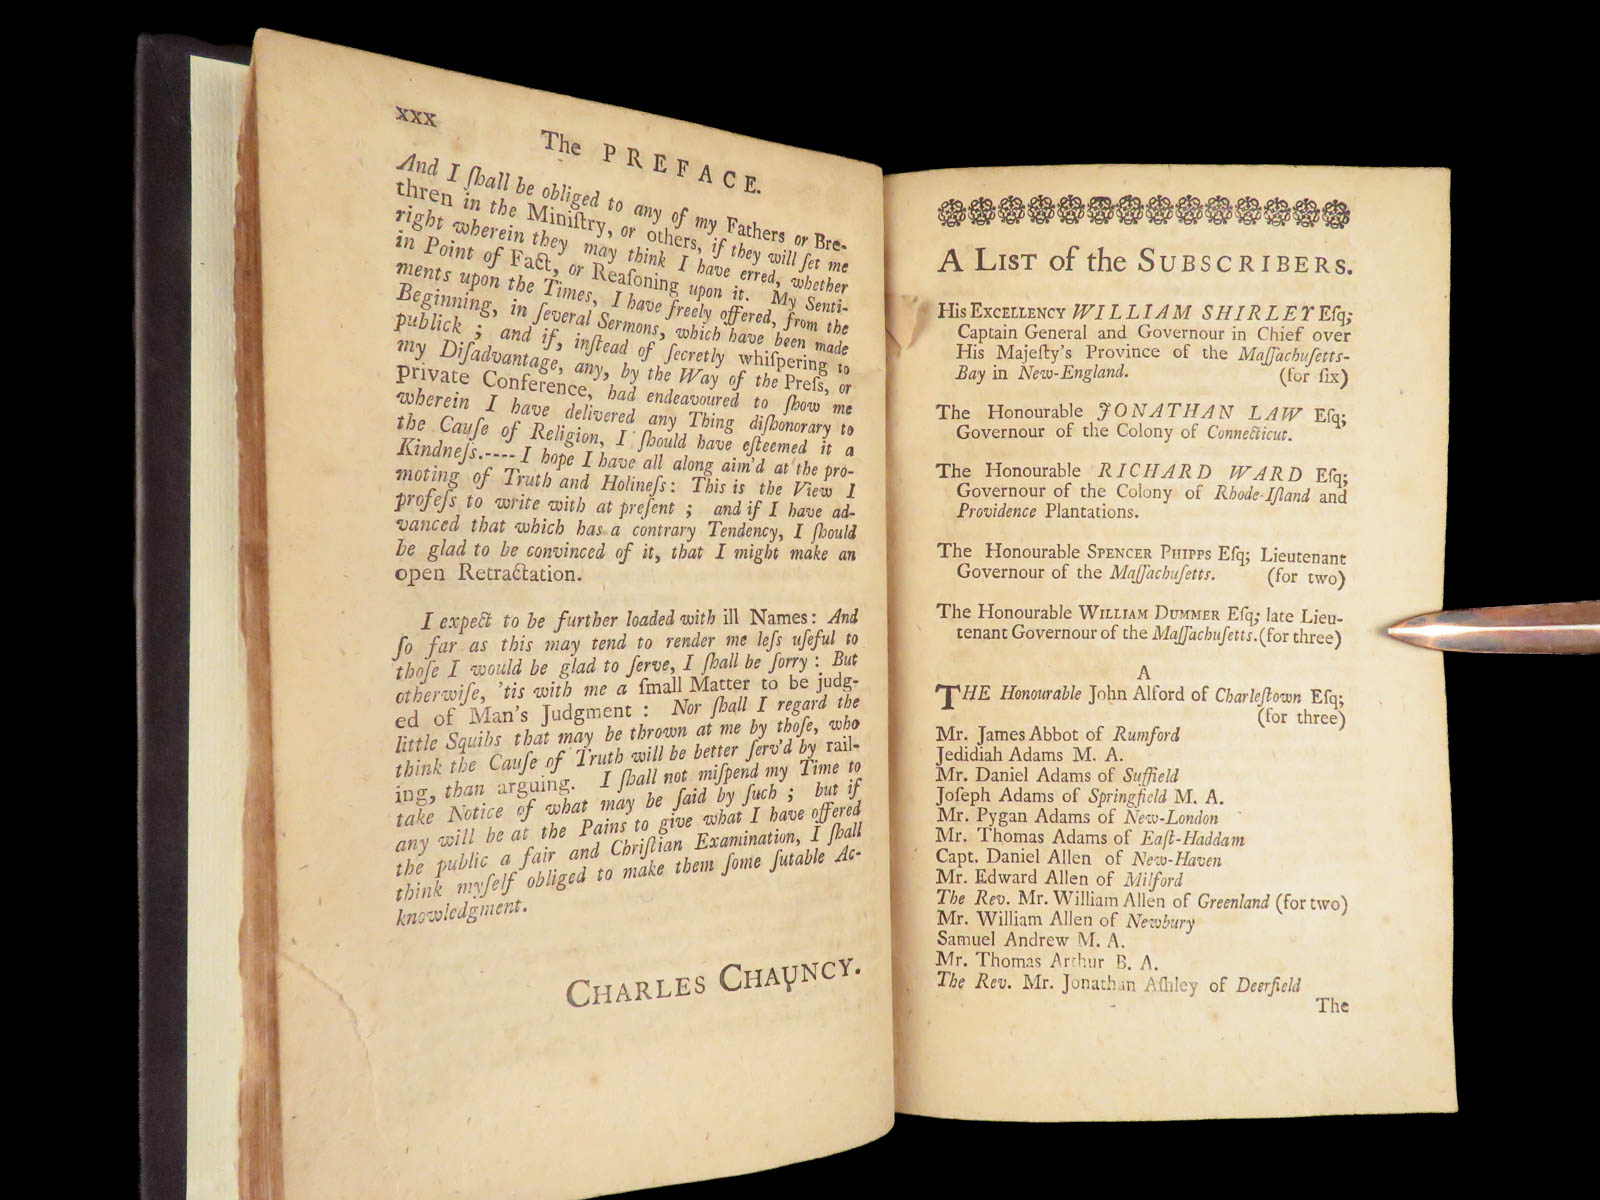 xxx
The PREFACE.
And I ſhall be obliged to any of my Fathers or Bre-
thren in the Miniſtry, or others, if they will ſet me
right wherein they may think I have erred, whether
in Point of Fact, or Reaſoning upon it. My Senti-
ments upon the Times, I have freely offered, from the
Beginning, in ſeveral Sermons, which have been made
publick ; and if, inſtead of ſecretly whiſpering to
my Diſadvantage, any, by the Way of the Preſs, or
private Conference, had endeavoured to ſhow me
wherein I have delivered any Thing diſhonorary to
the Cauſe of Religion, I ſhould have eſteemed it a
Kindneſs.---- I hope I have all along aim'd at the pro-
moting of Truth and Holineſs: This is the View I
profeſs to write with at preſent ; and if I have ad-
vanced that which has a contrary Tendency, I ſhould
be glad to be convinced of it, that I might make an
open Retractation.
I expect to be further loaded with ill Names: And
ſo far as this may tend to render me leſs uſeful to
thoſe I would be glad to ſerve, I ſhall be ſorry : But
otherwiſe, 'tis with me a ſmall Matter to be judg-
ed of Man's Judgment : Nor ſhall I regard the
little Squibs that may be thrown at me by thoſe, who
think the Cauſe of Truth will be better ſerv'd by rail-
ing, than arguing. I ſhall not miſpend my Time to
take Notice of what may be ſaid by ſuch ; but if
any will be at the Pains to give what I have offered
the public a fair and Chriſtian Examination, I ſhall
think myſelf obliged to make them ſome ſutable Ac-
knowledgment.
CHARLES CHAUNCY.
A LIST of the SUBSCRIBERS.
His EXCELLENCY WILLIAM SHIRLEY Eſq;
Captain General and Governour in Chief over
His Majeſty's Province of the Maſſachuſetts-
Bay in New-England. (for ſix)
The Honourable JONATHAN LAW Eſq;
Governour of the Colony of Connecticut.
The Honourable RICHARD WARD Eſq;
Governour of the Colony of Rhode-Iſland and
Providence Plantations.
The Honourable SPENCER PHIPPS Eſq; Lieutenant
Governour of the Maſſachuſetts. (for two)
The Honourable WILLIAM DUMMER Eſq; late Lieu-
tenant Governour of the Maſſachuſetts. (for three)
A
THE Honourable John Alford of Charleſtown Eſq;
(for three)
Mr. James Abbot of Rumford
Jedidiah Adams M. A.
Mr. Daniel Adams of Suffield
Joſeph Adams of Springfield M. A.
Mr. Pygan Adams of New-London
Mr. Thomas Adams of Eaſt-Haddam
Capt. Daniel Allen of New-Haven
Mr. Edward Allen of Milford
The Rev. Mr. William Allen of Greenland (for two)
Mr. William Allen of Newbury
Samuel Andrew M. A.
Mr. Thomas Arthur B. A.
The Rev. Mr. Jonathan Aſhley of Deerfield
The